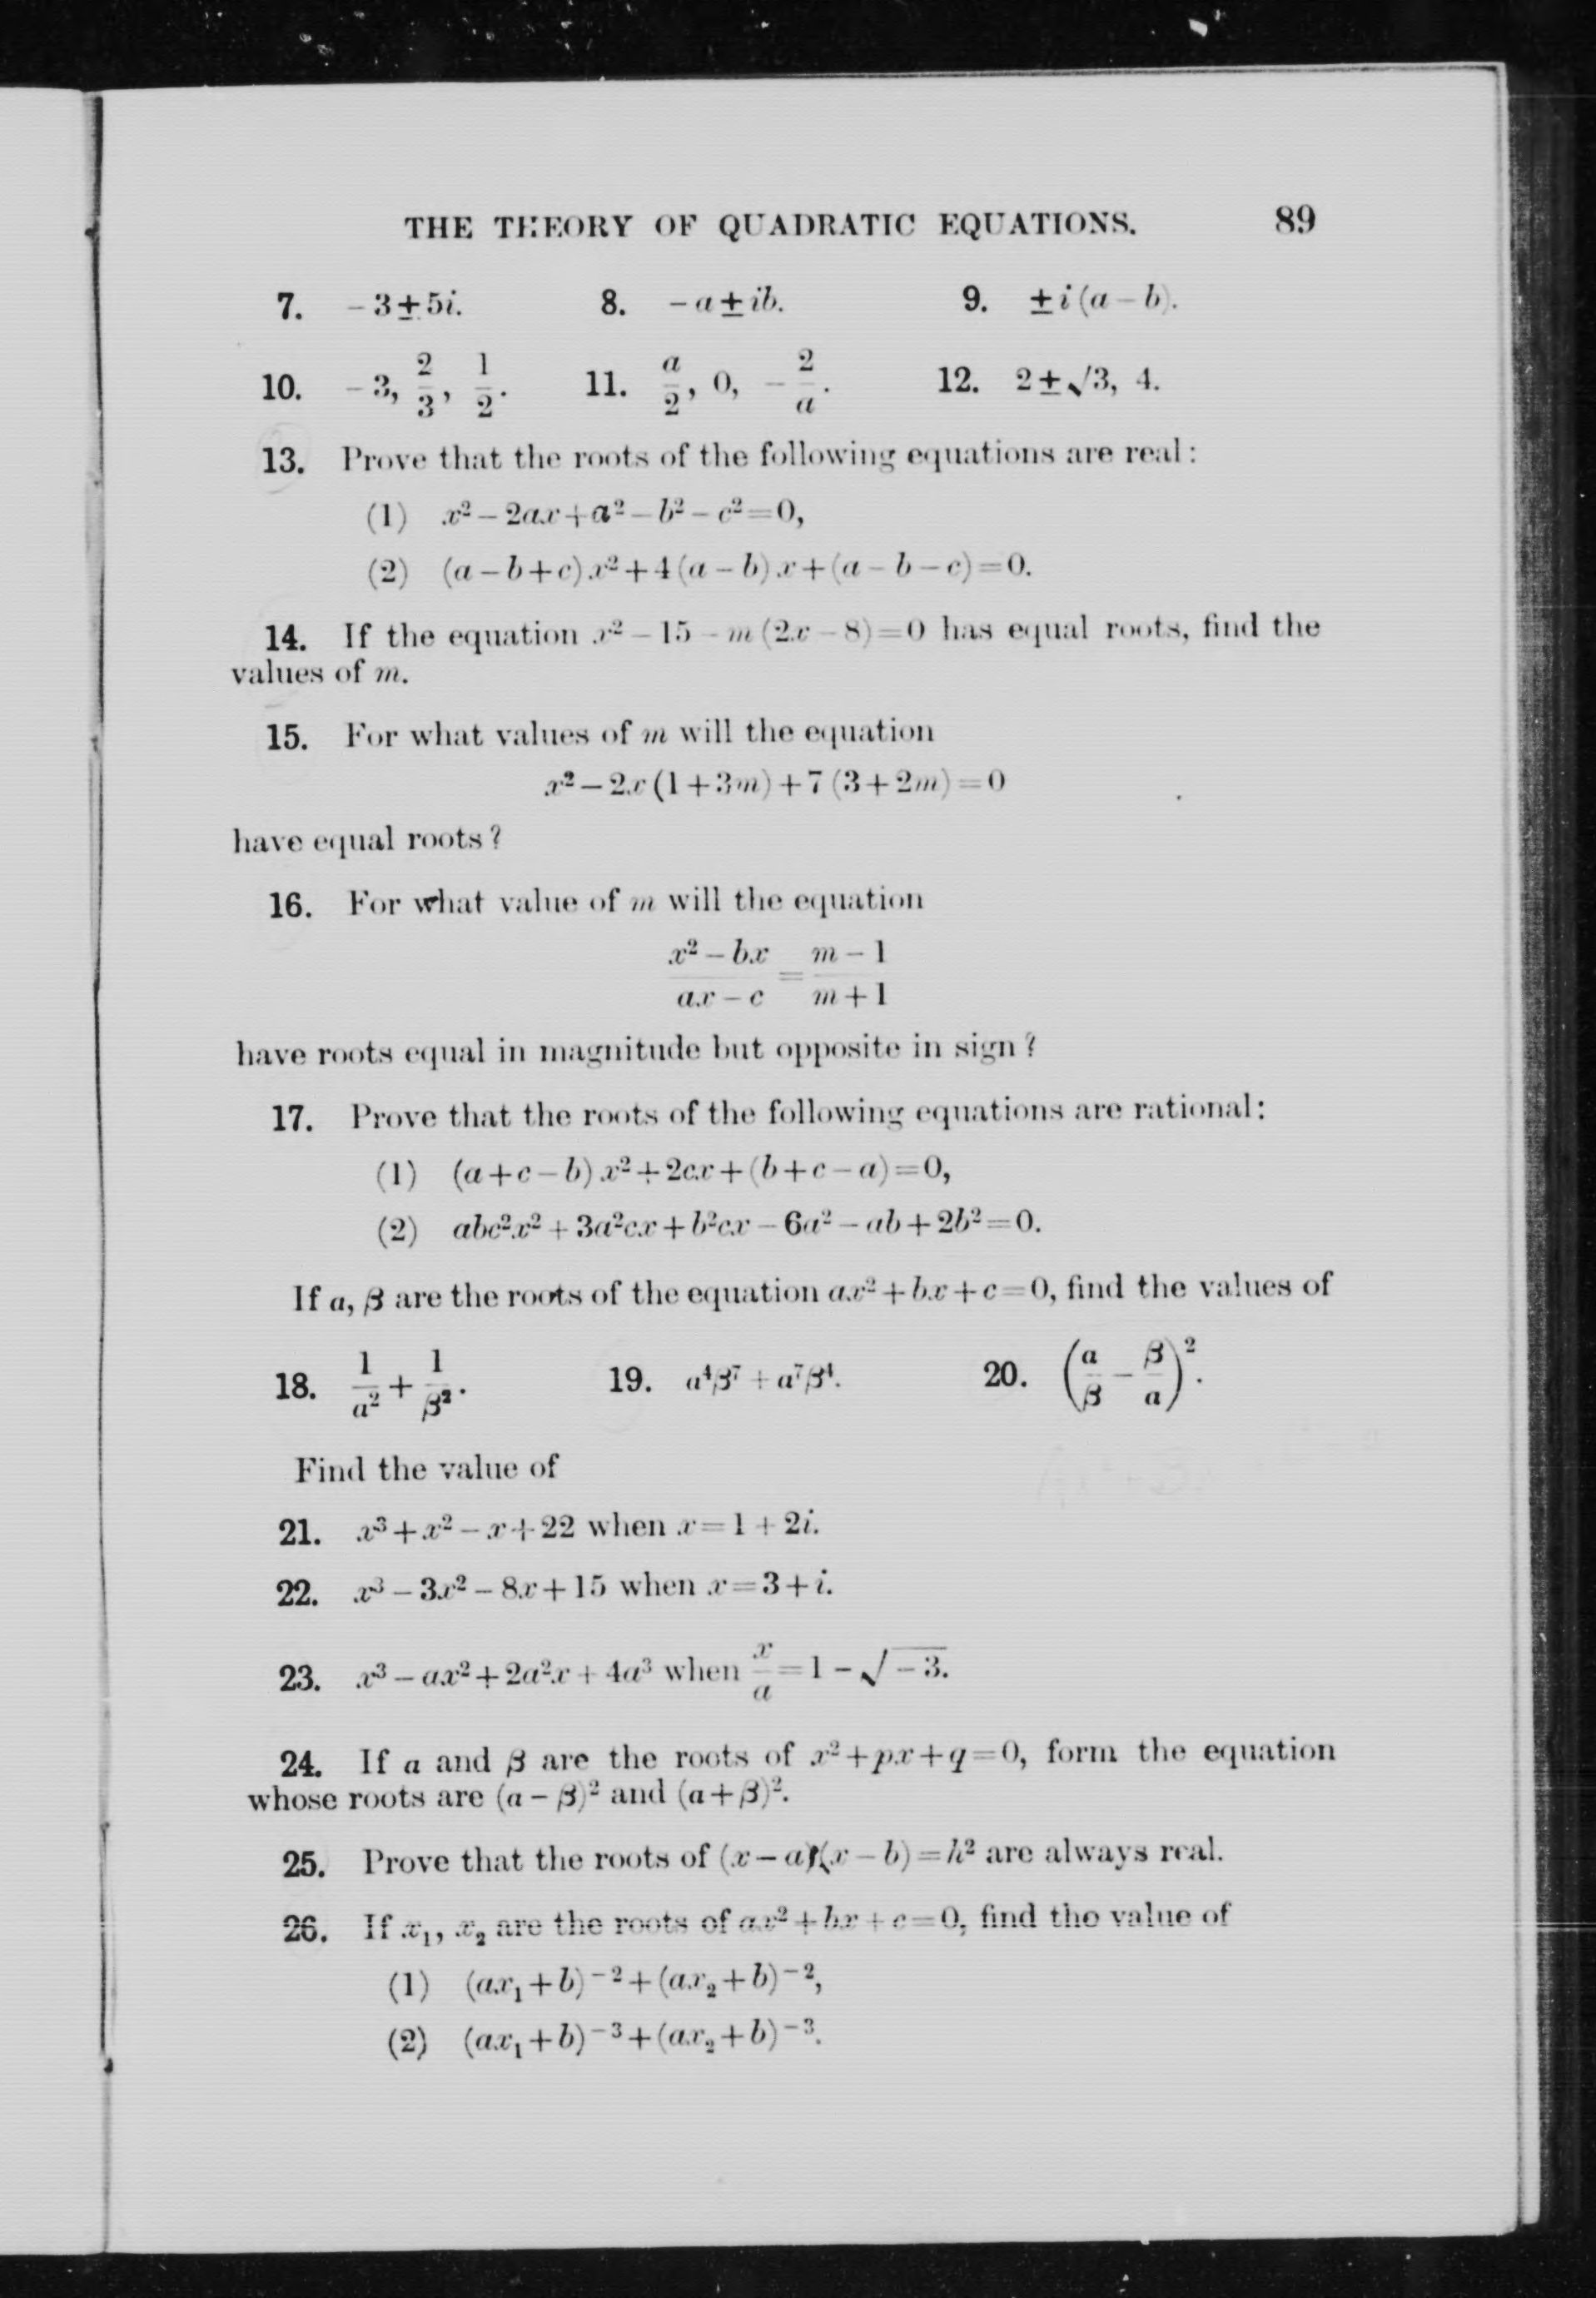 THE THEORY OF QUADRATIC EQUATIONS. 89
7. −3±5i. 8. −a±ib. 9. ±i(a−b).
10. −3, 2/3, 1/2. 11. a/2, 0, −2/a. 12. 2±√3, 4.
13. Prove that the roots of the following equations are real:
(1) x²−2ax+a²−b²−c²=0,
(2) (a−b+c)x²+4(a−b)x+(a−b−c)=0.
14. If the equation x²−15−m(2x−8)=0 has equal roots, find the
values of m.
15. For what values of m will the equation
x²−2x(1+3m)+7(3+2m)=0
have equal roots?
16. For what value of m will the equation
(x²−bx)/(ax−c)=(m−1)/(m+1)
have roots equal in magnitude but opposite in sign?
17. Prove that the roots of the following equations are rational:
(1) (a+c−b)x²+2cx+(b+c−a)=0,
(2) abc²x²+3a²cx+b²cx−6a²−ab+2b²=0.
If α, β are the roots of the equation ax²+bx+c=0, find the values of
18. 1/α²+1/β². 19. α⁴β⁷+α⁷β⁴. 20. (α/β−β/α)².
Find the value of
21. x³+x²−x+22 when x=1+2i.
22. x³−3x²−8x+15 when x=3+i.
23. x³−ax²+2a²x+4a³ when x/a=1−√−3.
24. If α and β are the roots of x²+px+q=0, form the equation
whose roots are (α−β)² and (α+β)².
25. Prove that the roots of (x−a)(x−b)=h² are always real.
26. If x₁, x₂ are the roots of ax²+bx+c=0, find the value of
(1) (ax₁+b)⁻²+(ax₂+b)⁻²,
(2) (ax₁+b)⁻³+(ax₂+b)⁻³.